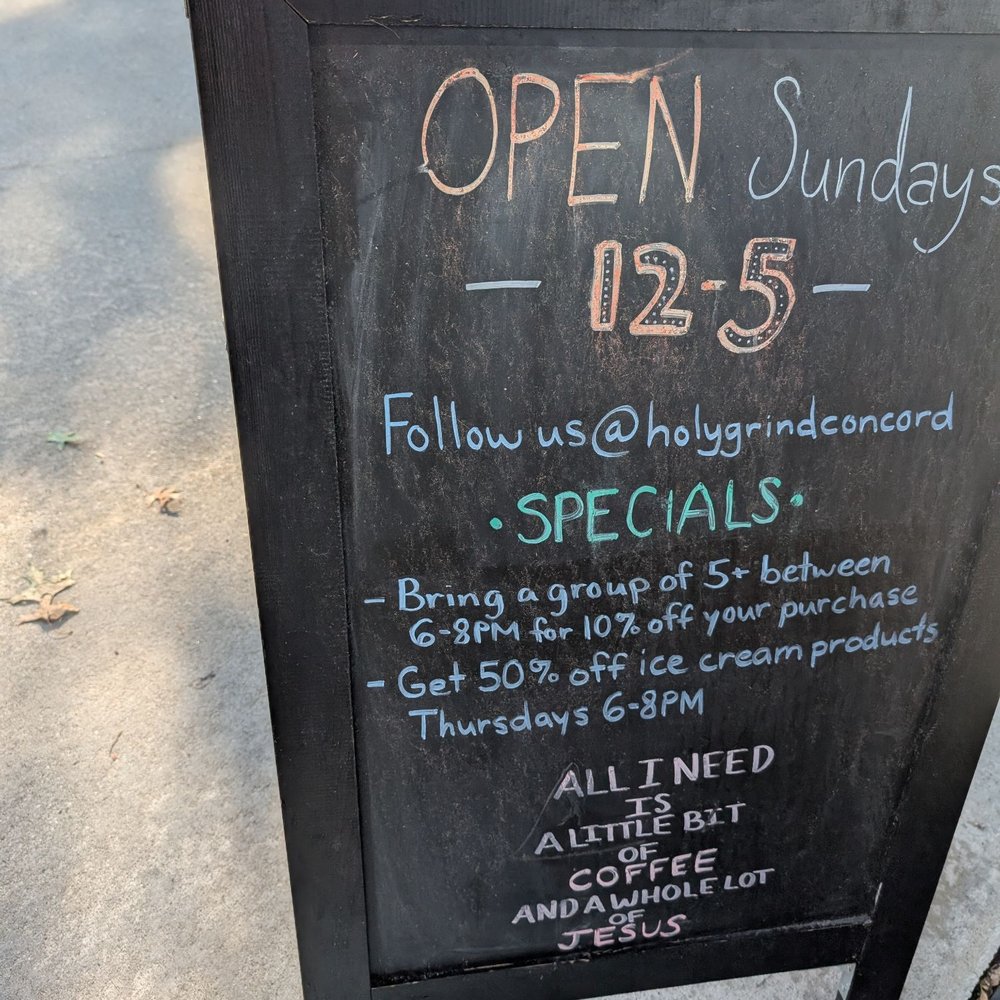 OPEN Sundays
- 12-5 -
Follow us @holygrindconcord
• SPECIALS •
- Bring a group of 5+ between
6-8PM for 10% off your purchase
- Get 50% off ice cream products
Thursdays 6-8PM
ALL I NEED
IS
A LITTLE BIT
OF
COFFEE
AND A WHOLE LOT
OF
JESUS